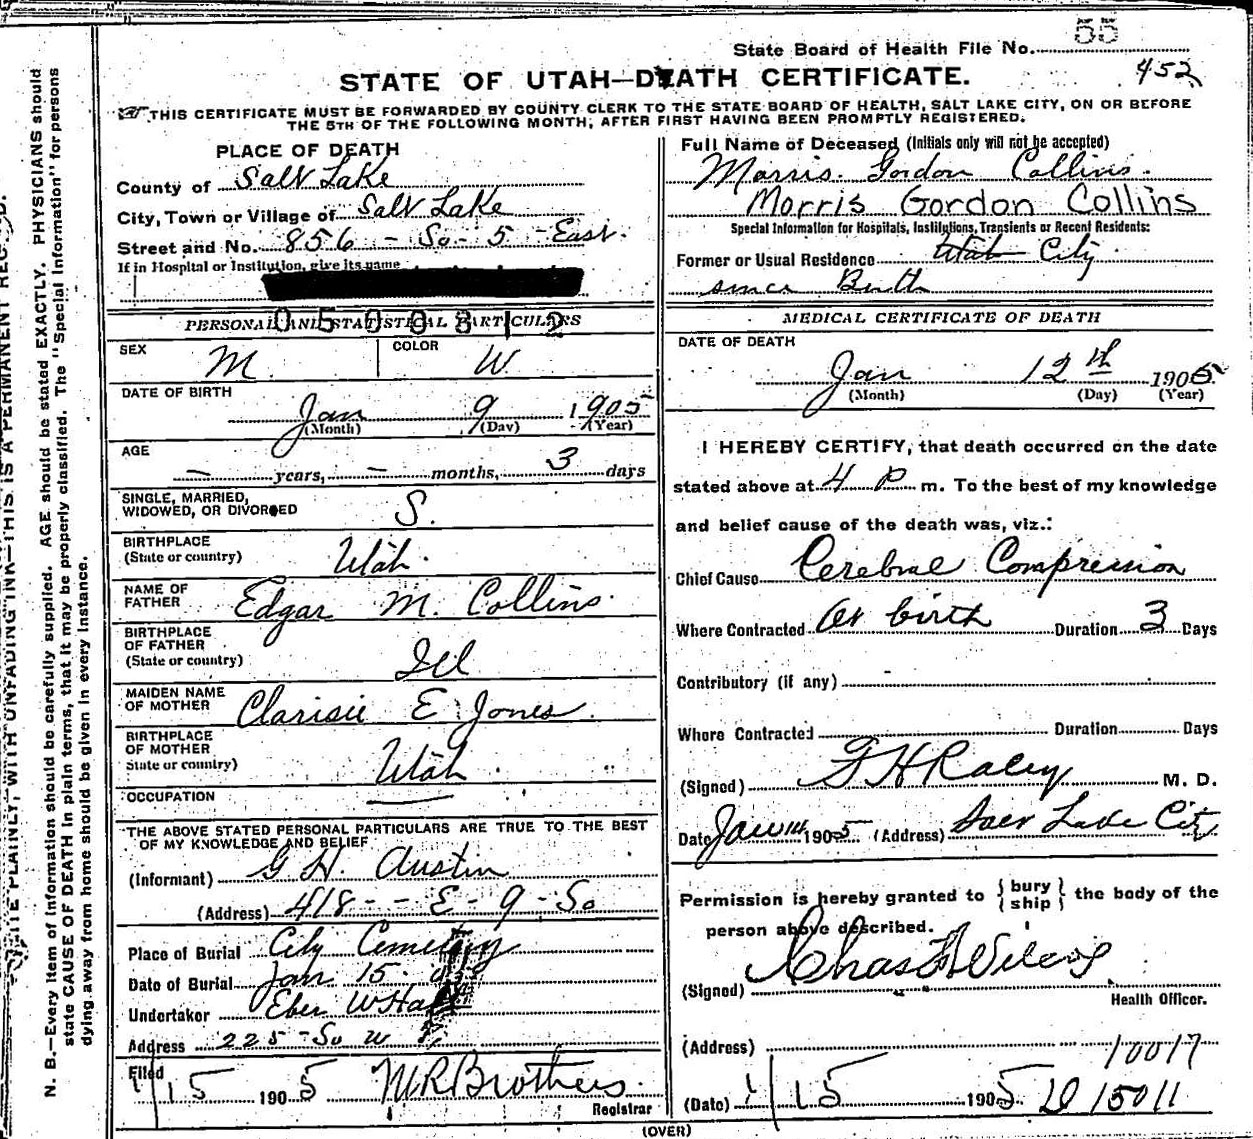 55
State Board of Health File No.
452
STATE OF UTAH—DEATH CERTIFICATE.
THIS CERTIFICATE MUST BE FORWARDED BY COUNTY CLERK TO THE STATE BOARD OF HEALTH, SALT LAKE CITY, ON OR BEFORE
THE 5TH OF THE FOLLOWING MONTH, AFTER FIRST HAVING BEEN PROMPTLY REGISTERED.
PLACE OF DEATH
County of Salt Lake
City, Town or Village of Salt Lake
Street and No. 856 - So - 5 - East.
If in Hospital or Institution, give its name
0500812
PERSONAL AND STATISTICAL PARTICULARS
SEX M. COLOR W.
DATE OF BIRTH
Jan 9 1905
(Month) (Day) (Year)
AGE
— years, — months, 3 days
SINGLE, MARRIED,
WIDOWED, OR DIVORCED S.
BIRTHPLACE
(State or country) Utah.
NAME OF
FATHER Edgar M. Collins.
BIRTHPLACE
OF FATHER
(State or country) Ill
MAIDEN NAME
OF MOTHER Clarisie E Jones.
BIRTHPLACE
OF MOTHER
State or country) Utah.
OCCUPATION —
THE ABOVE STATED PERSONAL PARTICULARS ARE TRUE TO THE BEST
OF MY KNOWLEDGE AND BELIEF
(Informant) G H. Austin
(Address) 418 - - E - 9 - So
Place of Burial City Cemetery
Date of Burial Jan 15
Undertaker Eber W Hall
Address 225 - So W
Filed
1/15 1905 M R Brothers.
Registrar
Full Name of Deceased (Initials only will not be accepted)
Morris. Gordon Collins.
Morris Gordon Collins
Special Information for Hospitals, Institutions, Transients or Recent Residents:
Former or Usual Residence Utah City
since Birth
MEDICAL CERTIFICATE OF DEATH
DATE OF DEATH
Jan 12th 1905
(Month) (Day) (Year)
I HEREBY CERTIFY, that death occurred on the date
stated above at 4 P m. To the best of my knowledge
and belief cause of the death was, viz.:
Chief Cause Cerebral Compression
Where Contracted At birth Duration 3 Days
Contributory (if any) -
Where Contracted Duration Days
(Signed) G H Raley M. D.
Date Jan 14 1905 (Address) Salt Lake City
Permission is hereby granted to { bury ship } the body of the
person above described.
(Signed) Chas Wilcox
Health Officer.
(Address) 10017
(Date) 1/15 1905 D 15011
(OVER)
N. B.—Every item of information should be carefully supplied. AGE should be stated EXACTLY. PHYSICIANS should
state CAUSE OF DEATH in plain terms, that it may be properly classified. The "Special Information" for persons
dying away from home should be given in every instance.
WRITE PLAINLY, WITH UNFADING INK—THIS IS A PERMANENT